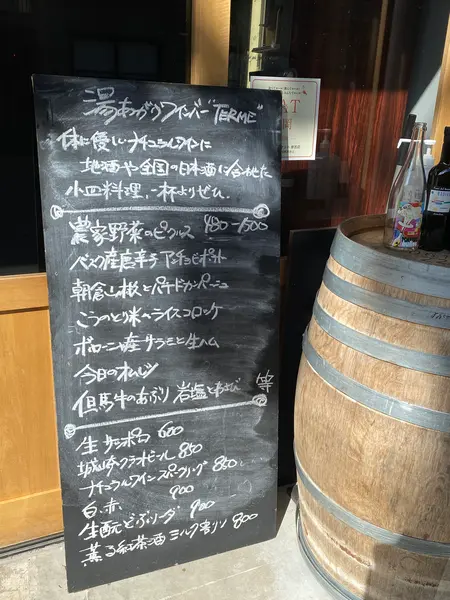 湯あがりワインバー "TERME"
体に優しいナチュラルワインに
地酒や全国の日本酒に合わせた
小皿料理 一杯よりぜひ
農家野菜のピクルス 480-1500
バスク産唐辛子 アンチョビポテト
朝倉山椒とパテドカンパーニュ
こうのとり米のライスコロッケ
ボローニャ産サラミと生ハム
今日のオムレツ
但馬牛のあぶり 岩塩とわさび 等
生サッポロ 600
城崎クラフトビール 850
ナチュラルワイン スパークリング 850
白、赤 900
生酛どぶろく 900
薫る紅茶酒 ミルク割り 800